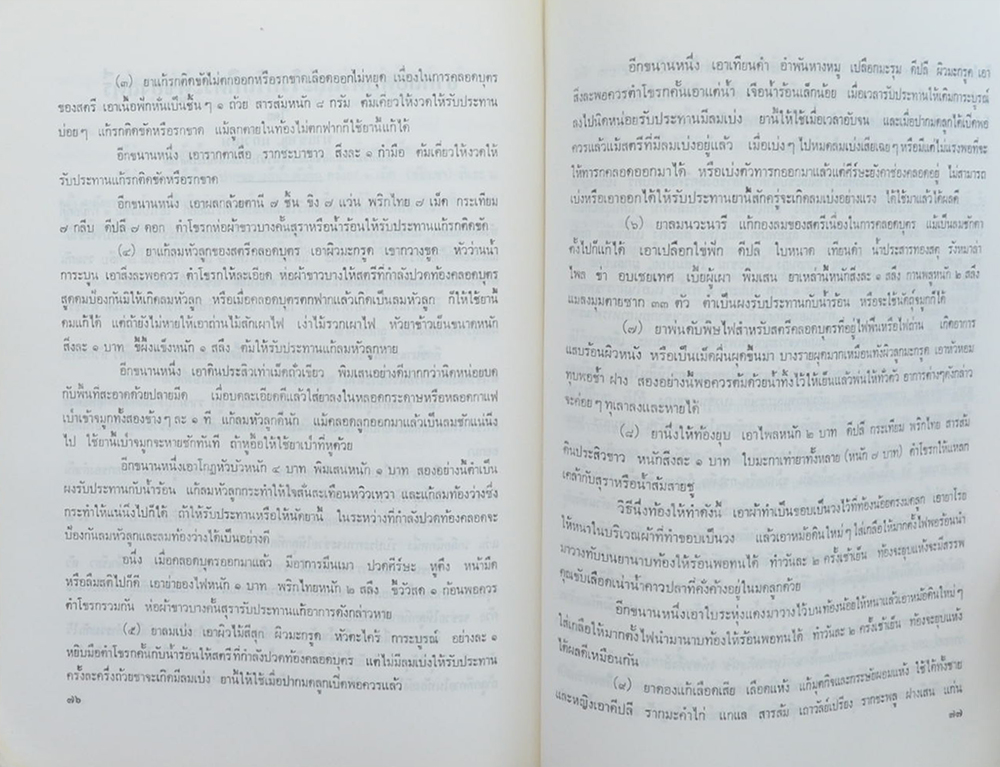 (๓) ยาแก้รกติดขัดไม่ตกออกหรือรกขาดเลือดออกไม่หยุด เนื่องในการคลอดบุตร
ของสตรี เอาเนื้อฟักหั่นเป็นชิ้นๆ ๑ ถ้วย สารสมหนัก ๘ กรัม ต้มเคี่ยวให้งวดให้รับประทาน
บ่อยๆ แก้รกติดขัดหรือรกขาด แม้ลูกตายในท้องไม่ตกฟากก็ใช้ยานี้แก้ได้
อีกขนานหนึ่ง เอารากตาเสือ รากชะบาขาว สิ่งละ ๑ กำมือ ต้มเคี่ยวให้งวดให้
รับประทานแก้รกติดขัดหรือรกขาด
อีกขนานหนึ่ง เอาผลกล้วยตานี ๗ ชิ้น ขิง ๗ แว่น พริกไทย ๗ เม็ด กระเทียม
๗ กลีบ ดีปลี ๗ ดอก ตำโขรกห่อผ้าขาวบางคั้นสุราหรือน้ำร้อนให้รับประทานแก้รกติดขัด
(๔) ยาแก้ลมหัวลูกของสตรีคลอดบุตร เอาผิวมะกรูด เขากวางขูด หัวว่านน้ำ
การะบูน เอาสิ่งละพอควร ตำโขรกให้ละเอียด ห่อผ้าขาวบางให้สตรีที่กำลังปวดท้องคลอดบุตร
สูดดมป้องกันมิให้เกิดลมหัวลูก หรือเมื่อคลอดบุตรตกฟากแล้วเกิดเป็นลมหัวลูก ก็ให้ใช้ยานี้
ดมแก้ได้ แต่ถ้ายังไม่หายให้เอาถ่านไม้สักเผาไฟ เง่าไม้รวกเผาไฟ หัวยาข้าวเย็นขนาดหนัก
สิ่งละ ๑ บาท ขี้ผึ้งแข็งหนัก ๑ สลึง ต้มให้รับประทานแก้ลมหัวลูกหาย
อีกขนานหนึ่ง เอาดินประสิวเท่าเม็ดถั่วเขียว พิมเสนอย่างดีมากกว่านิดหน่อยบด
กับพื้นที่สะอาดด้วยปลายมีด เมื่อบดละเอียดดีแล้วใส่ยาลงในหลอดกระดาษหรือหลอดกาแฟ
เป่าเข้าจมูกทั้งสองข้างๆ ละ ๑ ที แก้ลมหัวลูกดีนัก แม้คลอดลูกออกมาแล้วเป็นลมชักแน่นิ่ง
ไป ใช้ยานี้เป่าจมูกจะหายชักทันที ถ้าหูอื้อให้ใช้ยาเป่าที่หูด้วย
อีกขนานหนึ่งเอาโกฏหัวบัวหนัก ๔ บาท พิมเสนหนัก ๑ บาท สองอย่างนี้ตำเป็น
ผงรับประทานกับน้ำร้อน แก้ลมหัวลูกกระทำให้ใจสั่นสะเทือนหวิวเหวา และแก้ลมท้องว่างซึ่ง
กระทำให้แน่นิ่งไปก็ได้ ถ้าให้รับประทานหรือให้นัดยานี้ ในระหว่างที่กำลังปวดท้องคลอดจะ
ป้องกันลมหัวลูกและลมท้องว่างได้เป็นอย่างดี
อนึ่ง เมื่อคลอดบุตรออกมาแล้ว มีอาการมึนเมา ปวดศีร์ษะ หูตึง หน้ามืด
หรือลืมสติไปก็ดี เอาย่ายองไฟหนัก ๑ บาท พริกไทยหนัก ๒ สลึง ขี้วัวสด ๑ ก้อนพอควร
ตำโขรกรวมกัน ห่อผ้าขาวบางคั้นสุรารับประทานแก้อาการดังกล่าวหาย
(๕) ยาลมเบ่ง เอาผิวไม้สีสุก ผิวมะกรูด หัวตะไคร้ การะบูรณ์ อย่างละ ๑
หยิบมือตำโขรกคั้นกับน้ำร้อนให้สตรีที่กำลังปวดท้องคลอดบุตร แต่ไม่มีลมเบ่งให้รับประทาน
ครั้งละครึ่งถ้วยชาจะเกิดมีลมเบ่ง ยานี้ให้ใช้เมื่อปากมดลูกเบิดพอควรแล้ว
๗๖
อีกขนานหนึ่ง เอาเทียนดำ อำพันหางหมู เปลือกมะรุม ดีปลี ผิวมะกรูด เอา
สิ่งละพอควรตำโขรกคั้นเอาแต่น้ำ เจือน้ำร้อนเล็กน้อย เมื่อเวลารับประทานให้เติมการะบูรณ์
ลงไปนิดหน่อยรับประทานมีลมเบ่ง ยานี้ให้ใช้เมื่อเวลาอับจน และเมื่อปากมดลูกได้เบิดพอ
ควรแล้วแม้สตรีที่มีลมเบ่งอยู่แล้ว เมื่อเบ่งๆ ไปหมดลมเบ่งเสียเฉยๆ หรือมีแต่ไม่แรงพอที่จะ
ให้ทารกคลอดออกมาได้ หรือเบ่งตัวทารกออกมาแล้วแต่ศีร์ษะยังคาช่องคลอดอยู่ ไม่สามารถ
เบ่งหรือเอาออกได้ให้รับประทานยานี้สักครู่จะเกิดลมเบ่งอย่างแรง ได้ใช้มาแล้วได้ผลดี
(๖) ยาลมนวะนารี แก้กองลมของสตรีเนื่องในการคลอดบุตร แม้เป็นลมชักตา
ตั้งไปก็แก้ได้ เอาเปลือกไข่ฟัก ดีปลี ใบหนาด เทียนดำ น้ำประสารทองสตุ รังหมาล่า
ไพล ข่า อบเชยเทศ เบี้ยผู้เผา พิมเสน ยาเหล่านี้หนักสิ่งละ ๑ สลึง กานพลูหนัก ๒ สลึง
แมลงมุมตายซาก ๓๓ ตัว ตำเป็นผงรับประทานกับน้ำร้อน หรือจะใช้นัตถ์จมูกก็ได้
(๗) ยาพ่นดับพิษไฟสำหรับสตรีคลอดบุตรที่อยู่ไฟฟืนหรือไฟถ่าน เกิดอาการ
แสบร้อนผิวหนัง หรือเป็นเม็ดผื่นผุดขึ้นมา บางรายผุดมากเหมือนทังผิวลูกมะกรูด เอาหัวหอม
ทุบพอช้ำ ฝาง สองอย่างนี้พอควรต้มด้วยน้ำทิ้งไว้ให้เย็นแล้วพ่นให้ทั่วตัว อาการต่างๆ ดังกล่าว
จะค่อยๆ ทุเลาลงและหายได้
(๘) ยานึ่งให้ท้องยุบ เอาไพลหนัก ๒ บาท ดีปลี กระเทียม พริกไทย สารส้ม
ดินประสิวขาว หนักสิ่งละ ๑ บาท ใบมะกาเท่ายาทั้งหลาย (หนัก ๗ บาท) ตำโขรกให้แหลก
เคล้ากับสุราหรือน้ำส้มสายชู
วิธีนึ่งท้องให้ทำดังนี้ เอาผ้าทำเป็นขอบเป็นวงไว้ที่ท้องน้อยตรงมดลูก เอายาโรย
ให้หนาในบริเวณผ้าที่ทำขอบเป็นวง แล้วเอาหม้อดินใหม่ๆ ใส่เกลือให้มากตั้งไฟพอร้อนนำ
มาวางทับบนยานาบท้องให้ร้อนพอทนได้ ทำวันละ ๒ ครั้งเช้าเย็น ท้องจะยุบแห้งจะมีสรรพ
คุณขับเลือดเน่าน้ำคาวปลาที่คั่งค้างอยู่ในมดลูกด้วย
อีกขนานหนึ่งเอาใบระหุ่งแดงมาวางไว้บนท้องน้อยให้หนาแล้วเอาหม้อดินใหม่ๆ
ใส่เกลือให้มากตั้งไฟนำมานาบท้องให้ร้อนพอทนได้ ทำวันละ ๒ ครั้งเช้าเย็น ท้องจะยุบแห้ง
ได้ผลดีเหมือนกัน
(๙) ยาดองแก้เลือดเสีย เลือดแห้ง แก้มุตกิจและกระษัยผอมแห้ง ใช้ได้ทั้งชาย
และหญิงเอาดีปลี รากมะคำไก่ แกแล สารส้ม เถาวัลย์เปรียง รากชะพลู ฝางเสน แก่น
๗๗